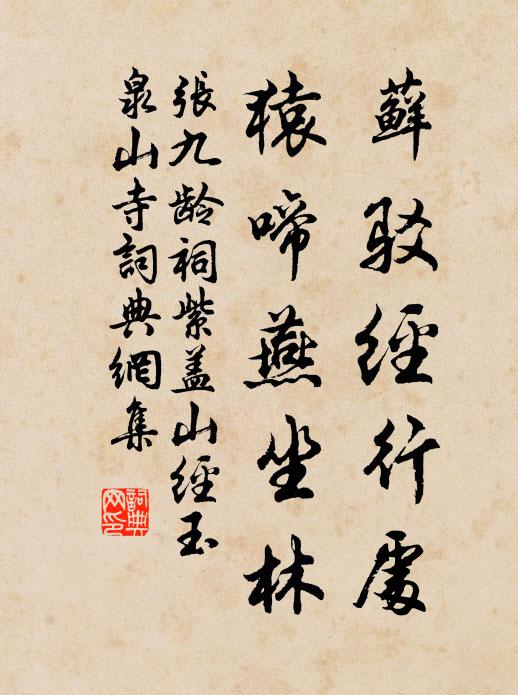 蘚駁經行處
猿啼燕坐林
張九齡祠紫蓋山經玉
泉山寺詞典網集
詞典網印